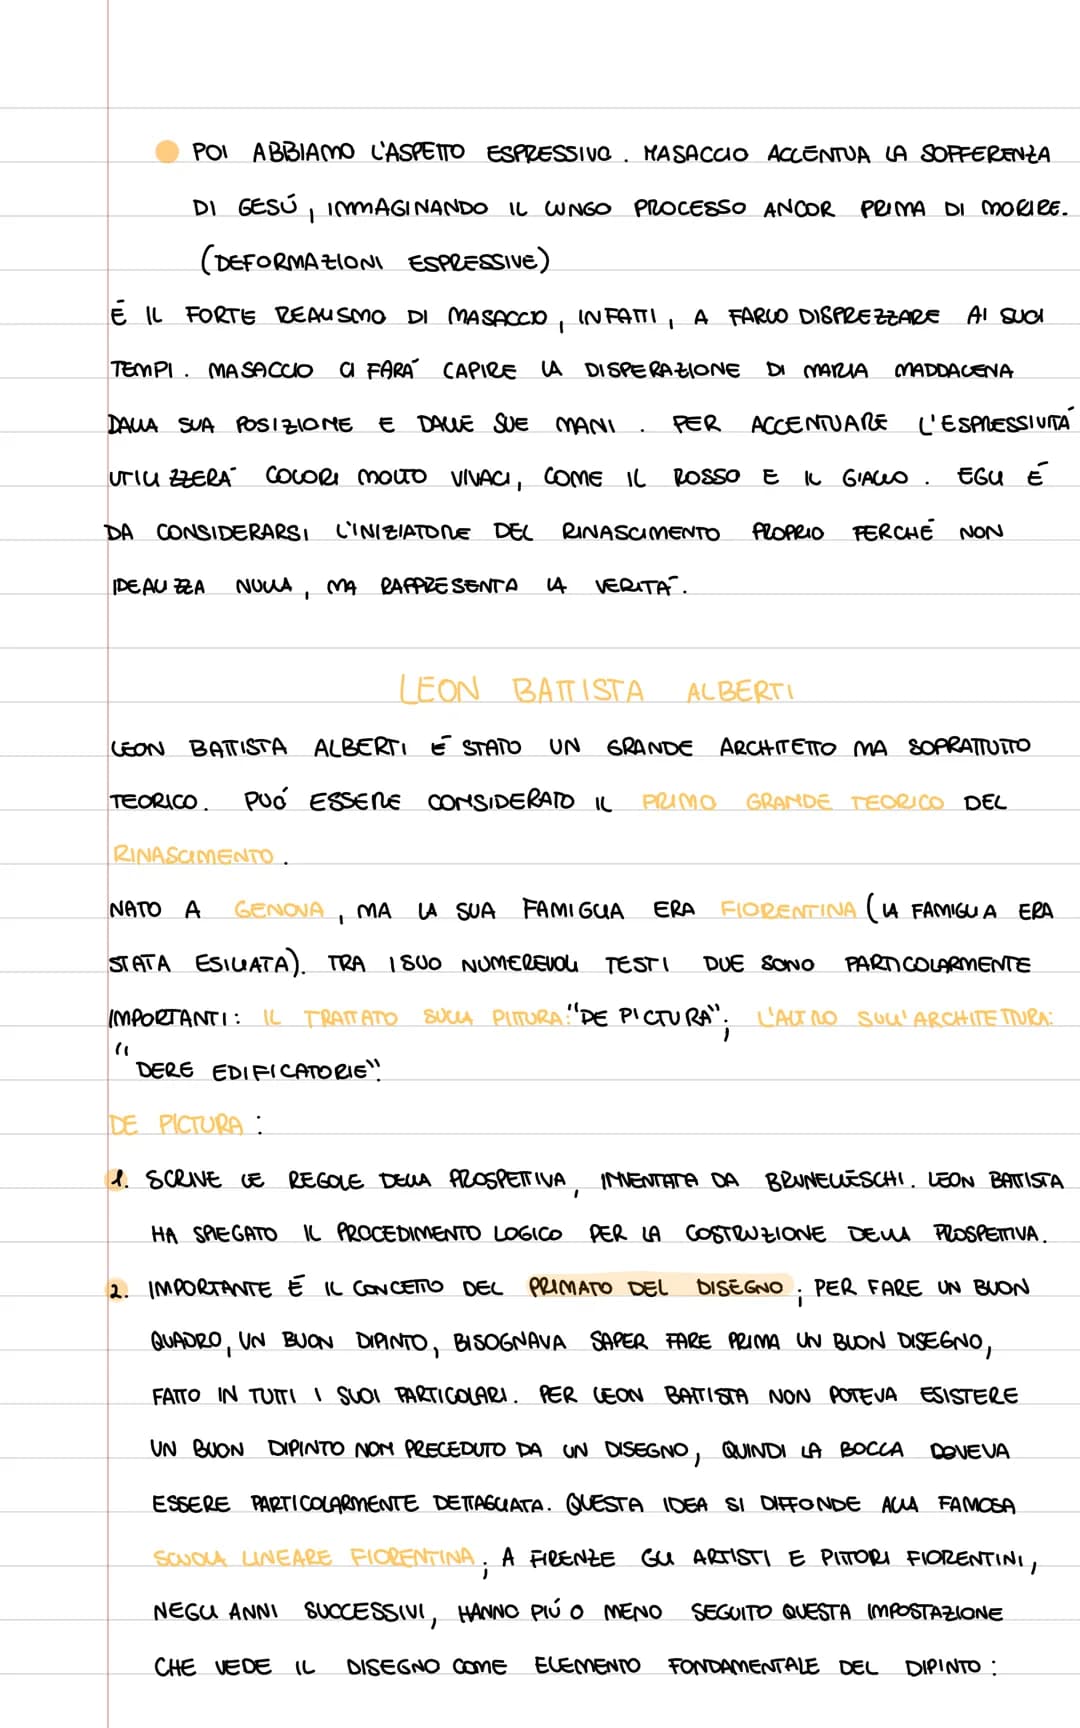 POI ABBIAMO L'ASPETTO ESPRESSIVO. MASACCIO ACCENTUA LA SOFFERENZA
DI GESÚ, IMMAGINANDO IL LUNGO PROCESSO ANCOR PRIMA DI MORIRE.
(DEFORMAZIONI ESPRESSIVE)
É IL FORTE REALISMO DI MASACCIO, INFATTI, A FARLO DISPREZZARE AI SUOI
TEMPI. MASACCIO CI FARÁ CAPIRE LA DISPERAZIONE DI MARIA MADDALENA
DALLA SUA POSIZIONE E DALLE SUE MANI. PER ACCENTUARE L'ESPRESSIVITÁ
UTILIZZERÁ COLORI MOLTO VIVACI, COME IL ROSSO E IL GIALLO. EGLI É
DA CONSIDERARSI L'INIZIATORE DEL RINASCIMENTO PROPRIO PERCHÉ NON
IDEALIZZA NULLA, MA RAPPRESENTA LA VERITÁ.
LEON BATTISTA ALBERTI
LEON BATTISTA ALBERTI É STATO UN GRANDE ARCHITETTO MA SOPRATTUTTO
TEORICO. PUÓ ESSERE CONSIDERATO IL PRIMO GRANDE TEORICO DEL
RINASCIMENTO.
NATO A GENOVA, MA LA SUA FAMIGLIA ERA FIORENTINA (LA FAMIGLIA ERA
STATA ESILIATA). TRA I SUO NUMEREVOLI TESTI DUE SONO PARTICOLARMENTE
IMPORTANTI: IL TRATTATO SULLA PITTURA: "DE PICTURA"; L'ALTRO SULL'ARCHITETTURA:
"DERE EDIFICATORIE".
DE PICTURA:
1. SCRIVE LE REGOLE DELLA PROSPETTIVA, INVENTATA DA BRUNELLESCHI. LEON BATTISTA
HA SPIEGATO IL PROCEDIMENTO LOGICO PER LA COSTRUZIONE DELLA PROSPETTIVA.
2. IMPORTANTE É IL CONCETTO DEL PRIMATO DEL DISEGNO; PER FARE UN BUON
QUADRO, UN BUON DIPINTO, BISOGNAVA SAPER FARE PRIMA UN BUON DISEGNO,
FATTO IN TUTTI I SUOI PARTICOLARI. PER LEON BATTISTA NON POTEVA ESISTERE
UN BUON DIPINTO NON PRECEDUTO DA UN DISEGNO, QUINDI LA BOCCA DOVEVA
ESSERE PARTICOLARMENTE DETTAGLIATA. QUESTA IDEA SI DIFFONDE ALLA FAMOSA
SCUOLA LINEARE FIORENTINA; A FIRENZE GLI ARTISTI E PITTORI FIORENTINI,
NEGLI ANNI SUCCESSIVI, HANNO PIÚ O MENO SEGUITO QUESTA IMPOSTAZIONE
CHE VEDE IL DISEGNO COME ELEMENTO FONDAMENTALE DEL DIPINTO: